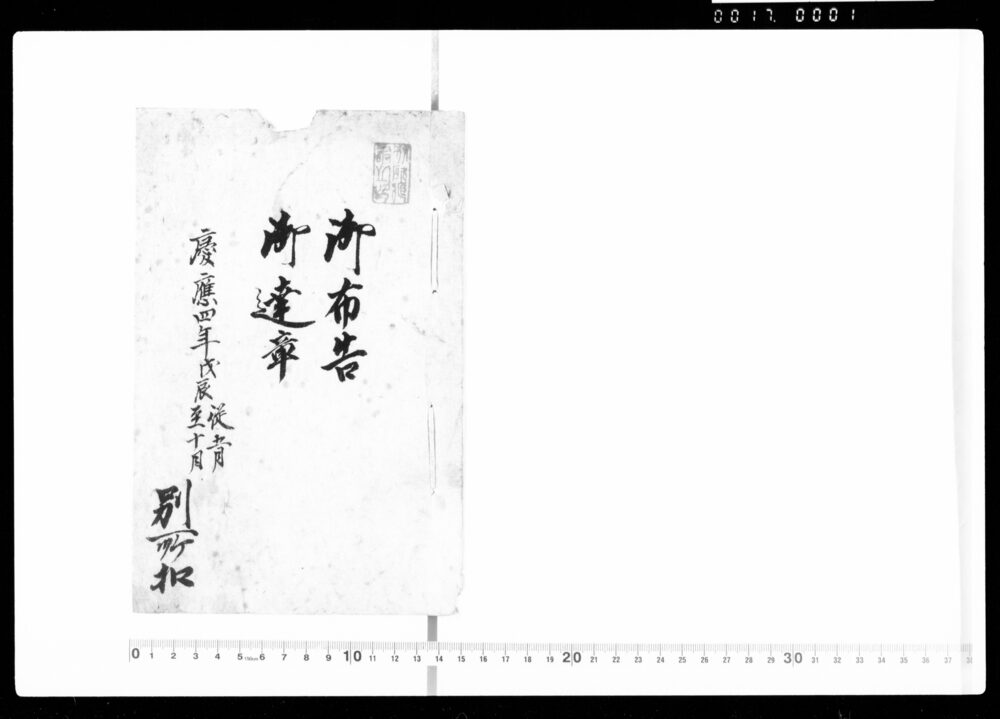 0017. 0001
御布告
御達章
慶應四年戊辰
従
至十月
別所
扣
0 1 2 3 4 5 6 7 8 9 10 11 12 13 14 15 16 17 18 19 20 21 22 23 24 25 26 27 28 29 30 31 32 33 34 35 36 37